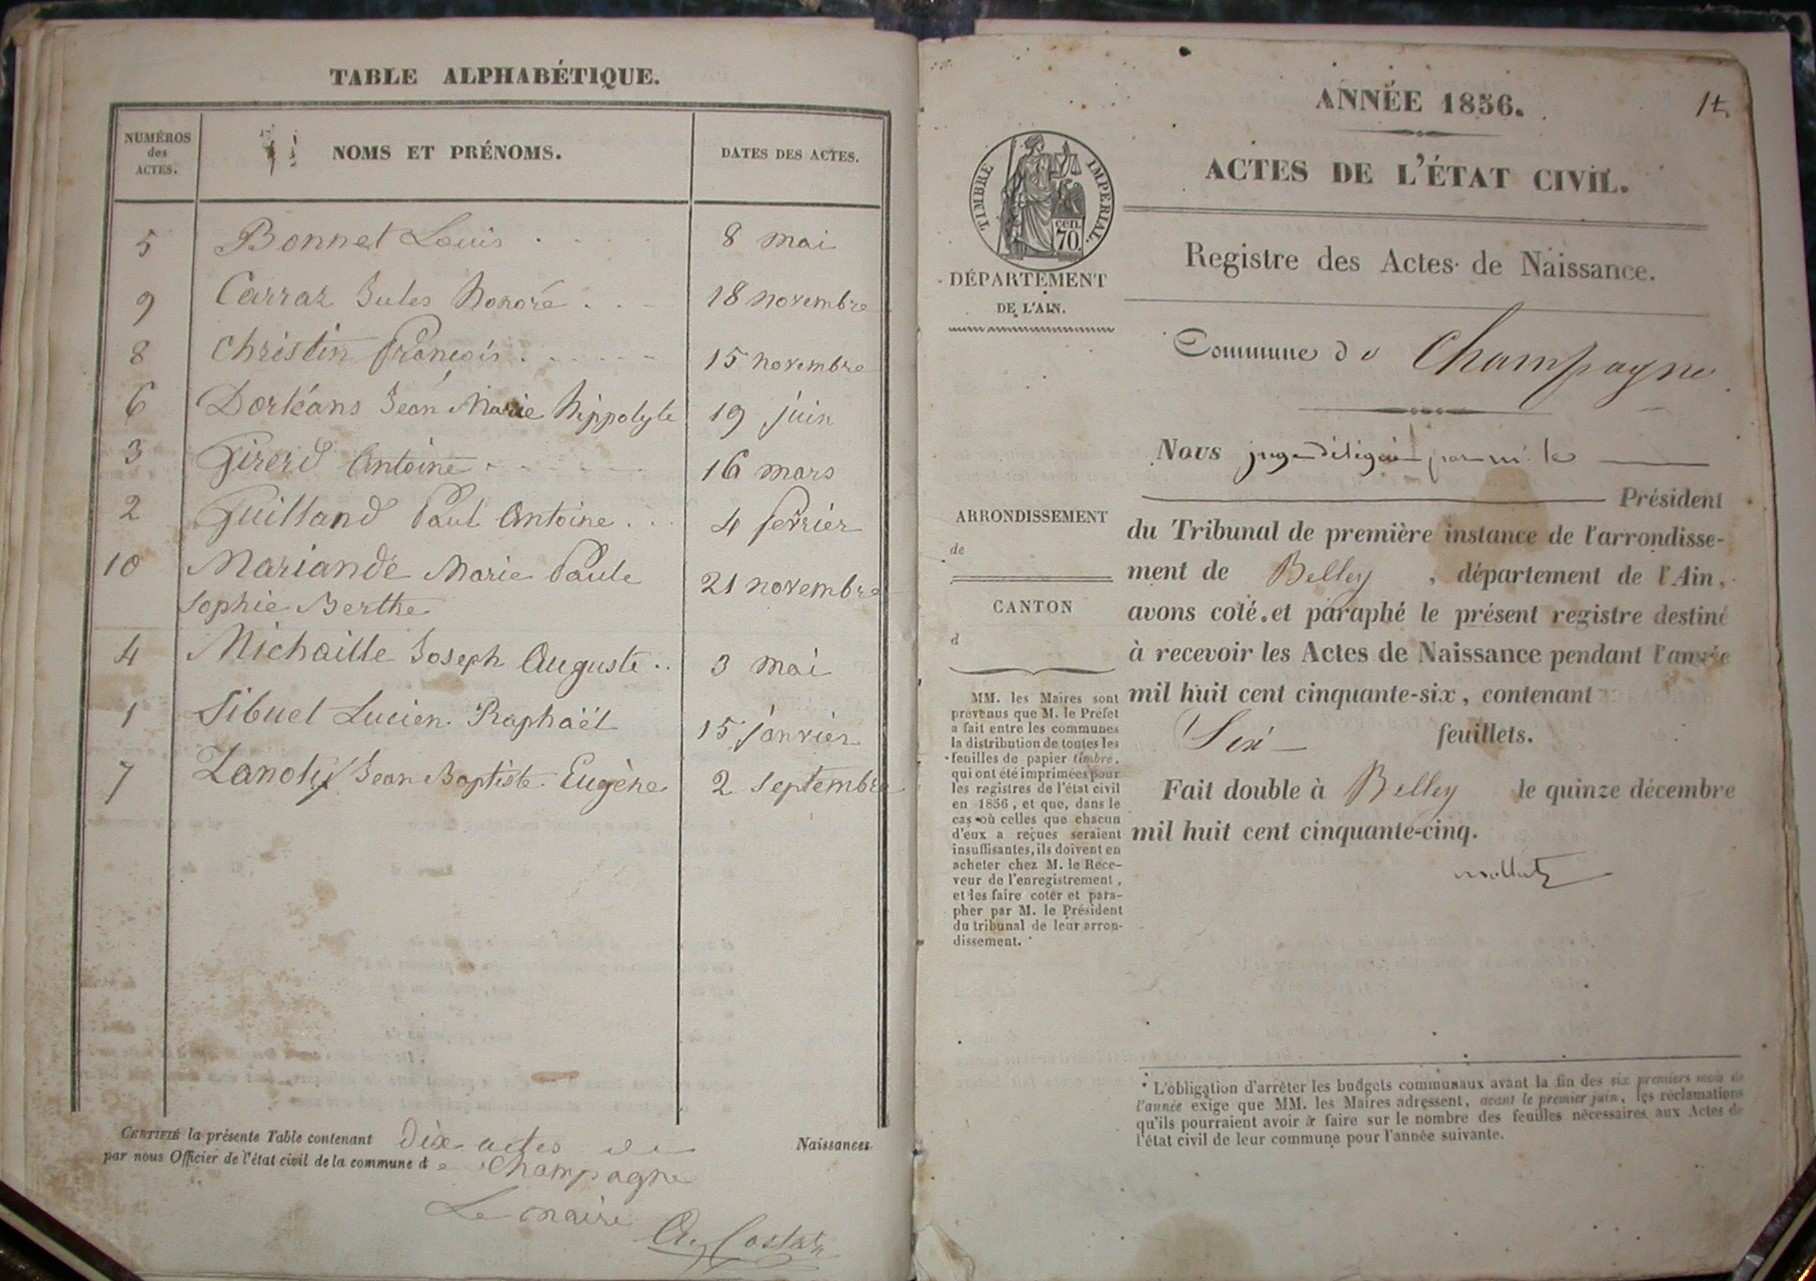 TABLE ALPHABÉTIQUE.
NUMÉROS
des
ACTES.
NOMS ET PRÉNOMS.
DATES DES ACTES.
5 Bonnet Louis 8 mai
9 Carraz Jules honoré 18 novembre
8 Christin François 15 novembre
6 Dorléans Jean Marie hippolyte 19 juin
3 Girerd Antoine 16 mars
2 Guilland Paul Antoine 4 fevrier
10 Mariande Marie Paule 21 novembre
Sophie Berthe
4 Michaille Joseph Auguste 3 mai
1 Sibuet Lucien Raphaël 15 janvier
7 Zanoly Jean Baptiste Eugène 2 septembre
CERTIFIÉ la présente Table contenant Dix actes de Naissances
par nous Officier de l'état civil de la commune de Champagne
Le maire
1
ANNÉE 1856.
ACTES DE L'ÉTAT CIVIL.
TIMBRE IMPÉRIAL.
cen.
70.
DÉPARTEMENT
DE L'AIN.
Registre des Actes de Naissance.
Commune de Champagne
Nous juge délégué par mr. le
Président
du Tribunal de première instance de l'arrondisse-
ment de Belley, département de l'Ain,
avons coté et paraphé le présent registre destiné
à recevoir les Actes de Naissance pendant l'année
mil huit cent cinquante-six, contenant
Six feuillets.
Fait double à Belley le quinze décembre
mil huit cent cinquante-cinq.
ARRONDISSEMENT
de
CANTON
d
MM. les Maires sont
prévenus que M. le Préfet
a fait entre les communes
la distribution de toutes les
feuilles de papier timbré,
qui ont été imprimées pour
les registres de l'état civil
en 1856, et que, dans le
cas où celles que chacun
d'eux a reçues seraient
insuffisantes, ils doivent en
acheter chez M. le Rece-
veur de l'enregistrement,
et les faire coter et para-
pher par M. le Président
du tribunal de leur arron-
dissement.
* L'obligation d'arrêter les budgets communaux avant la fin des six premiers mois de
l'année exige que MM. les Maires adressent, avant le premier juin, les réclamations
qu'ils pourraient avoir à faire sur le nombre des feuilles nécessaires aux Actes de
l'état civil de leur commune pour l'année suivante.